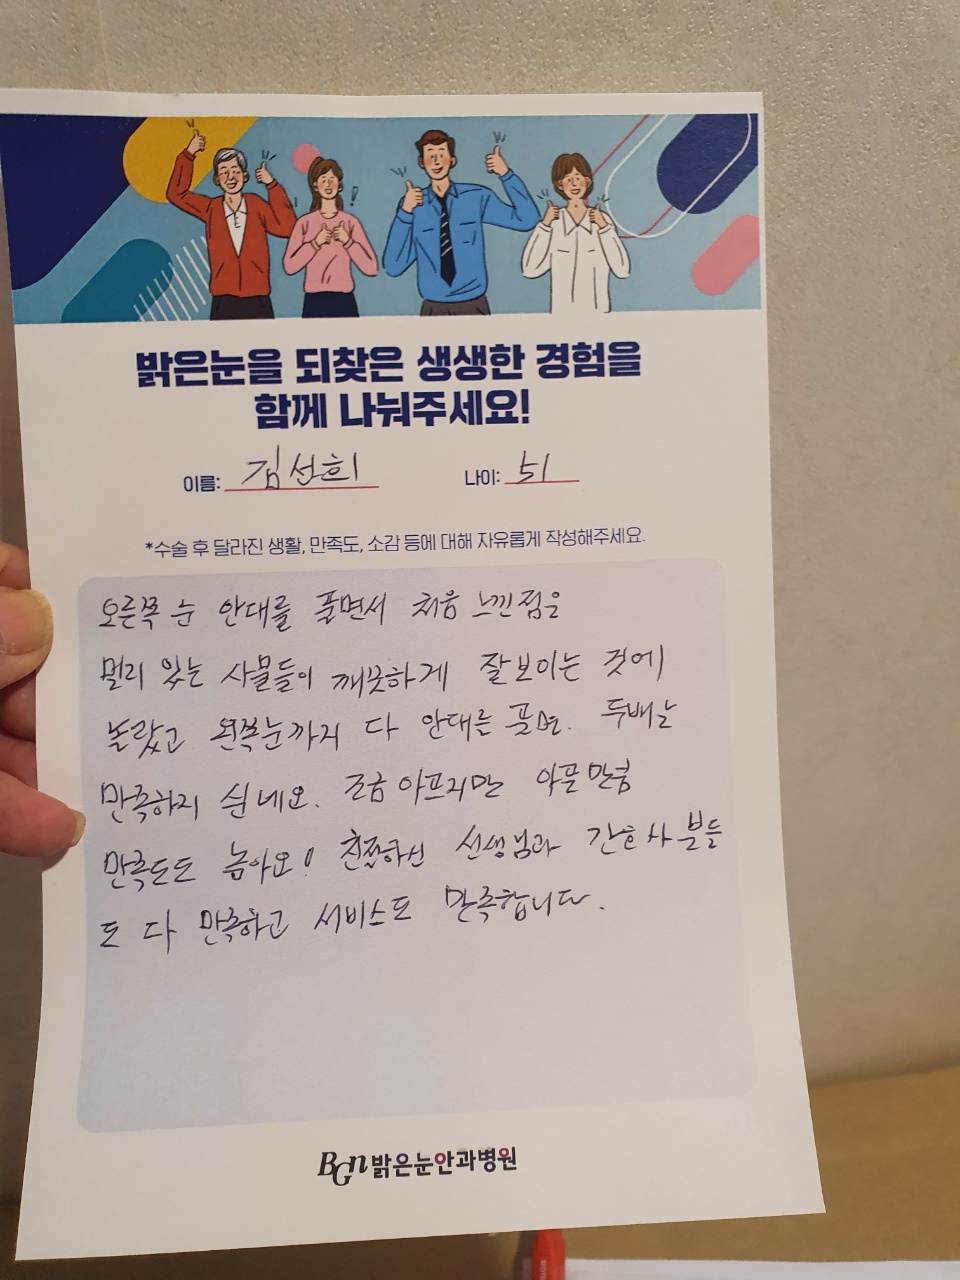 밝은눈을 되찾은 생생한 경험을
함께 나눠주세요!
이름: 김선희 나이: 51
*수술 후 달라진 생활, 만족도, 소감 등에 대해 자유롭게 작성해주세요.
오른쪽 눈 안대를 풀면서 처음 느낀점은
멀리 있는 사물들이 깨끗하게 잘보이는 것에
놀랐고 왼쪽눈까지 다 안대를 풀면. 두배는
만족하지 싶네요. 조금 아프지만 아픈만큼
만족도도 높아요! 친절하신 선생님과 간호사분들
도 다 만족하고 서비스도 만족합니다.
BGN 밝은눈안과병원